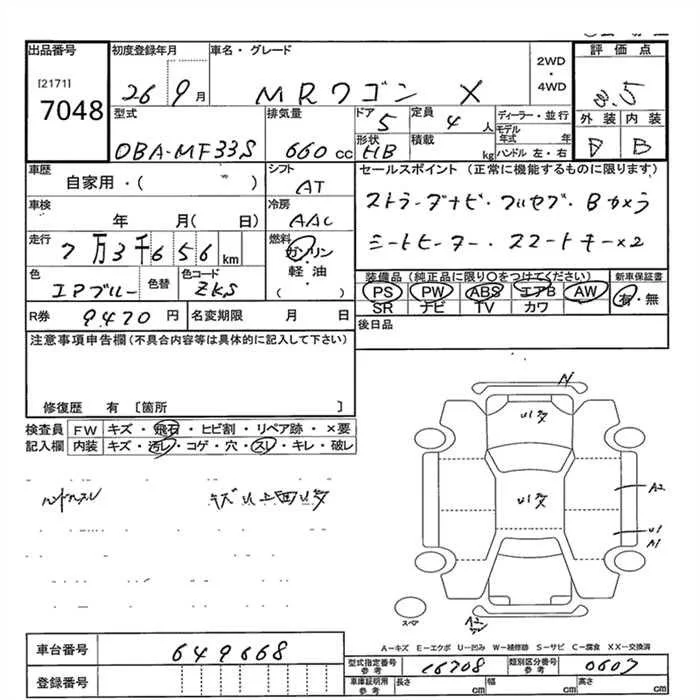 出品番号 初度登録年月 車名・グレード 評価点
[2171] 7048 26 9月 MRワゴン X 2WD・4WD 3.5
型式 排気量 ドア 定員 ディーラー・並行 外装 内装
DBA-MF33S 660 cc 5 4 人 モデル年式 年 D B
形状 HB 積載 kg ハンドル 左・右
車歴 シフト セールスポイント (正常に機能するものに限ります)
自家用・( ) AT
車検 冷房 ストラーダナビ・フルセグ・Bカメラ
年 月( 日) AAC
走行 燃料 シートヒーター・スマートキー×2
7万3千656km ガソリン・軽油・( )
色 色替 色コード 装備品 (純正品に限り○をつけてください) 新車保証書
エアブルー ZKS PS PW ABS エアB AW 有・無
SR ナビ TV カワ
R券 9470円 名変期限 月 日 後日品
注意事項申告欄(不具合内容等は具体的に記入して下さい)
修復歴 有 〔箇所 〕
検査員 FW キズ・飛石・ヒビ割・リペア跡・×要
記入欄 内装 キズ・汚レ・コゲ・穴・スレ・キレ・破レ
ハンドルスレ キズ U 上面U多
U1多
U1多
A2
U1
A1
スペア
A2
A−キズ E−エクボ U−凹み W−補修跡 S−サビ C−腐食 XX−交換済
車台番号 649668 型式指定番号 参考 16708 類別区分番号 参考 0607
登録番号 車庫証明用 参考 長さ cm 幅 cm 高さ cm